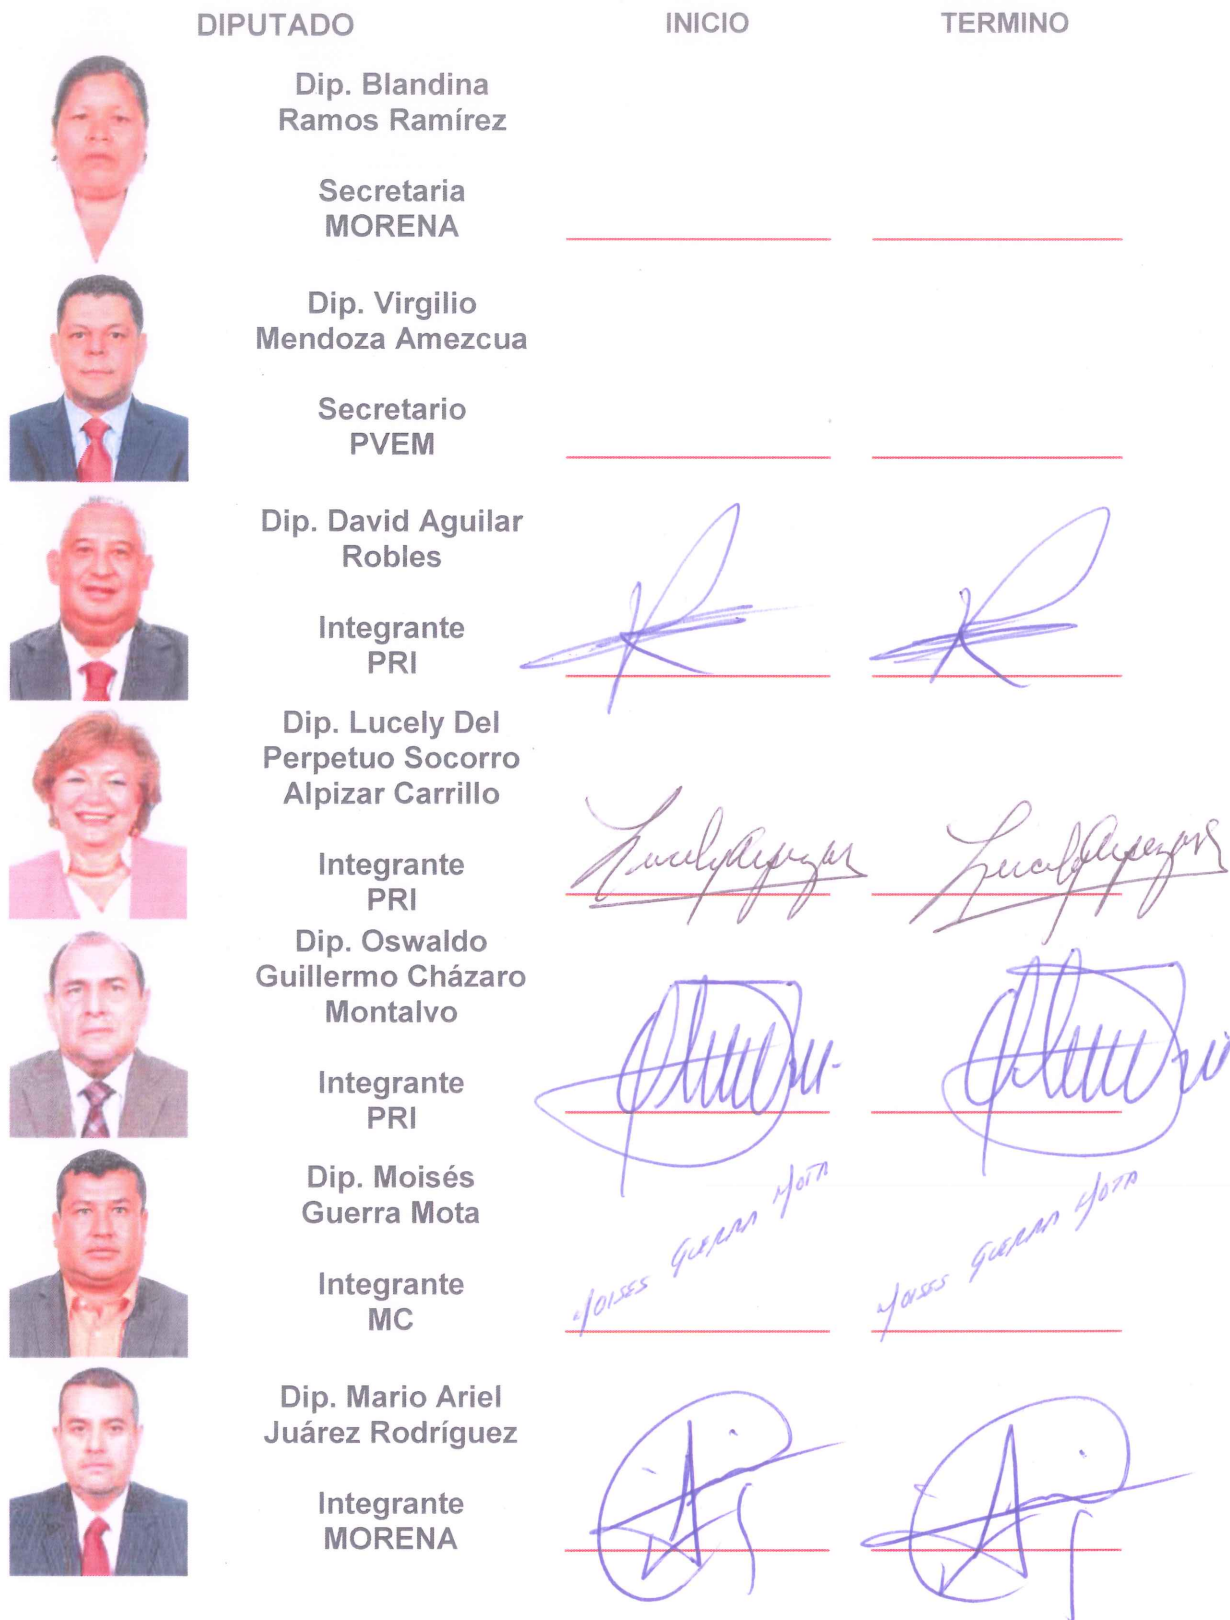 DIPUTADO INICIO TERMINO
Dip. Blandina
Ramos Ramírez
Secretaria
MORENA
Dip. Virgilio
Mendoza Amezcua
Secretario
PVEM
Dip. David Aguilar
Robles
Integrante
PRI
Dip. Lucely Del
Perpetuo Socorro
Alpizar Carrillo
Integrante
PRI
Lucelyalpizar Lucelyalpizar
Dip. Oswaldo
Guillermo Cházaro
Montalvo
Integrante
PRI
Dip. Moisés
Guerra Mota
Integrante
MC
MOISES GUERRA MOTA MOISES GUERRA MOTA
Dip. Mario Ariel
Juárez Rodríguez
Integrante
MORENA